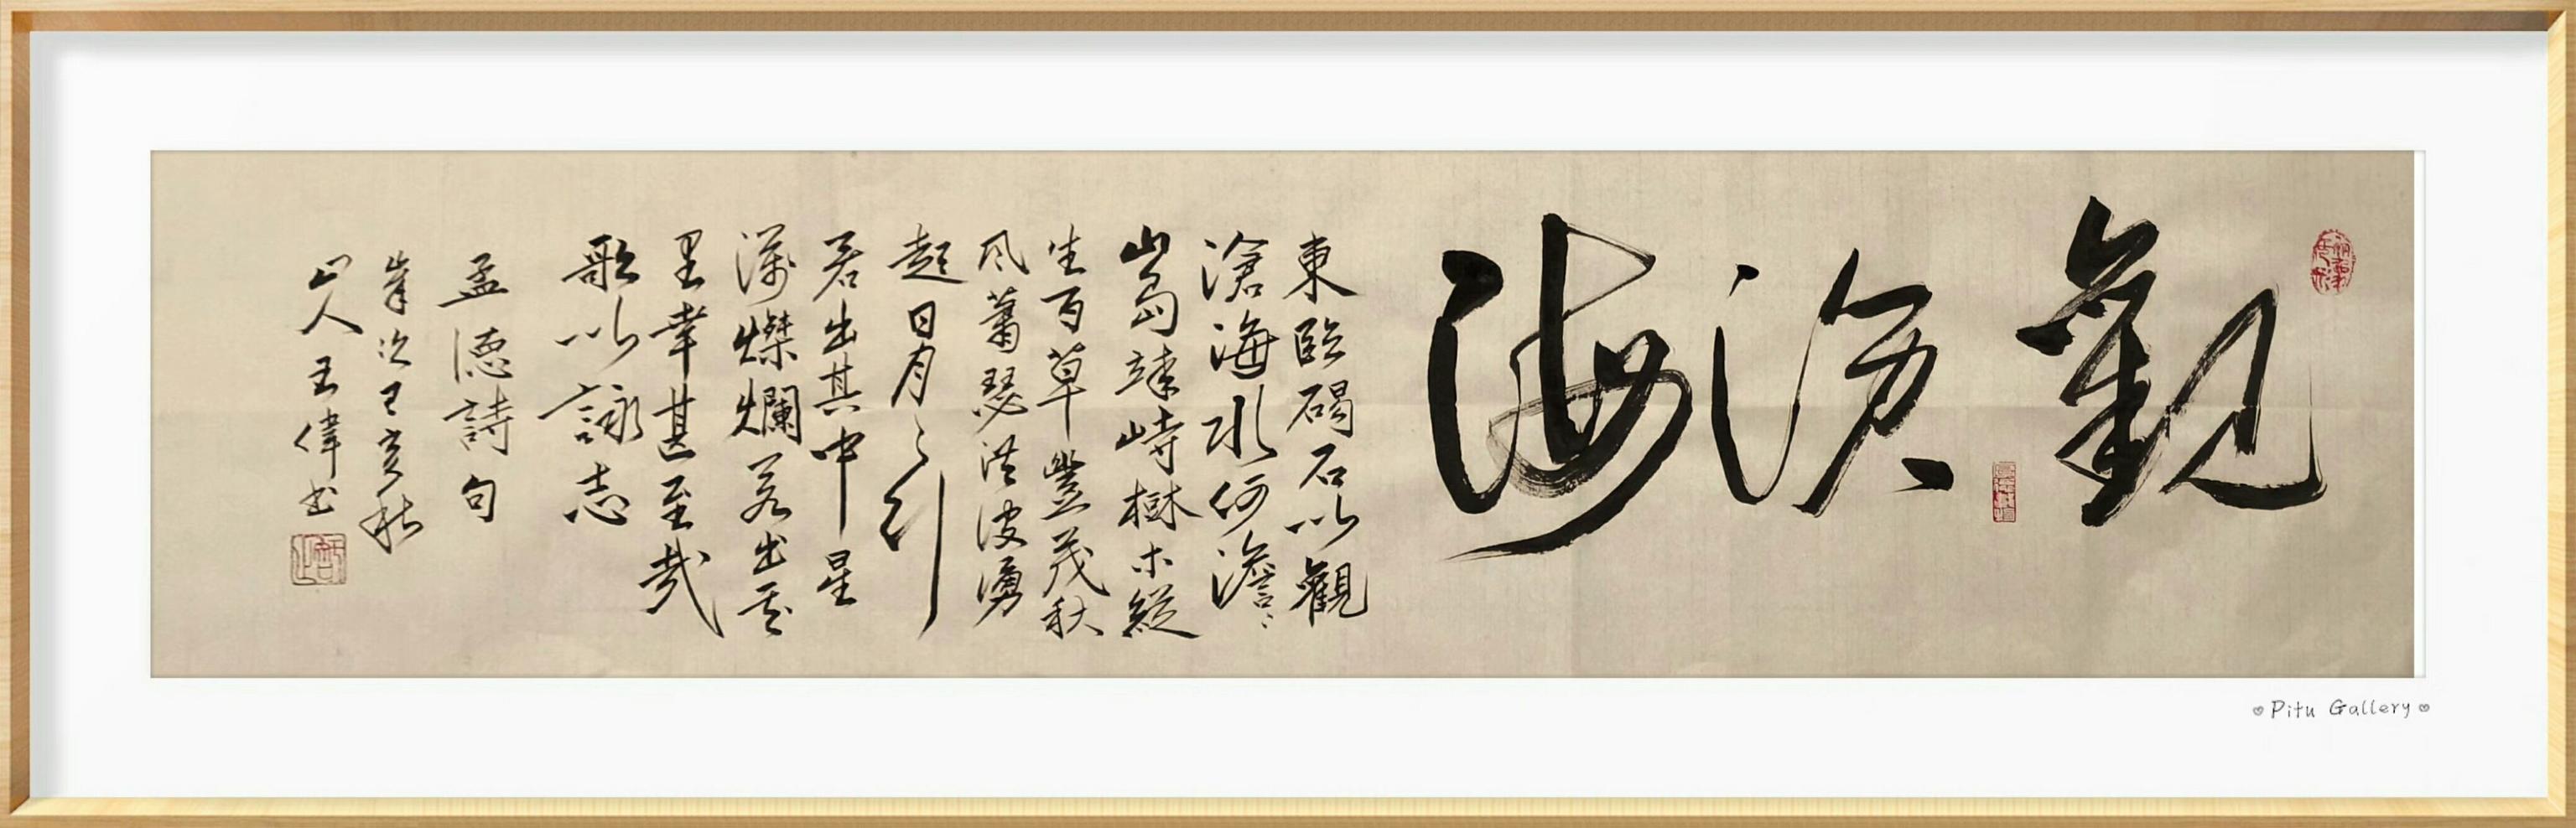 觀滄海
東臨碣石以觀
滄海水何澹〻
山島竦峙樹木縱
生百草豐茂秋
風蕭瑟洪波湧
起日月之行
若出其中星
漢燦爛若出其
里幸甚至哉
歌以詠志
孟德詩句
歲次己亥秋
山人王偉书
Pitu Gallery